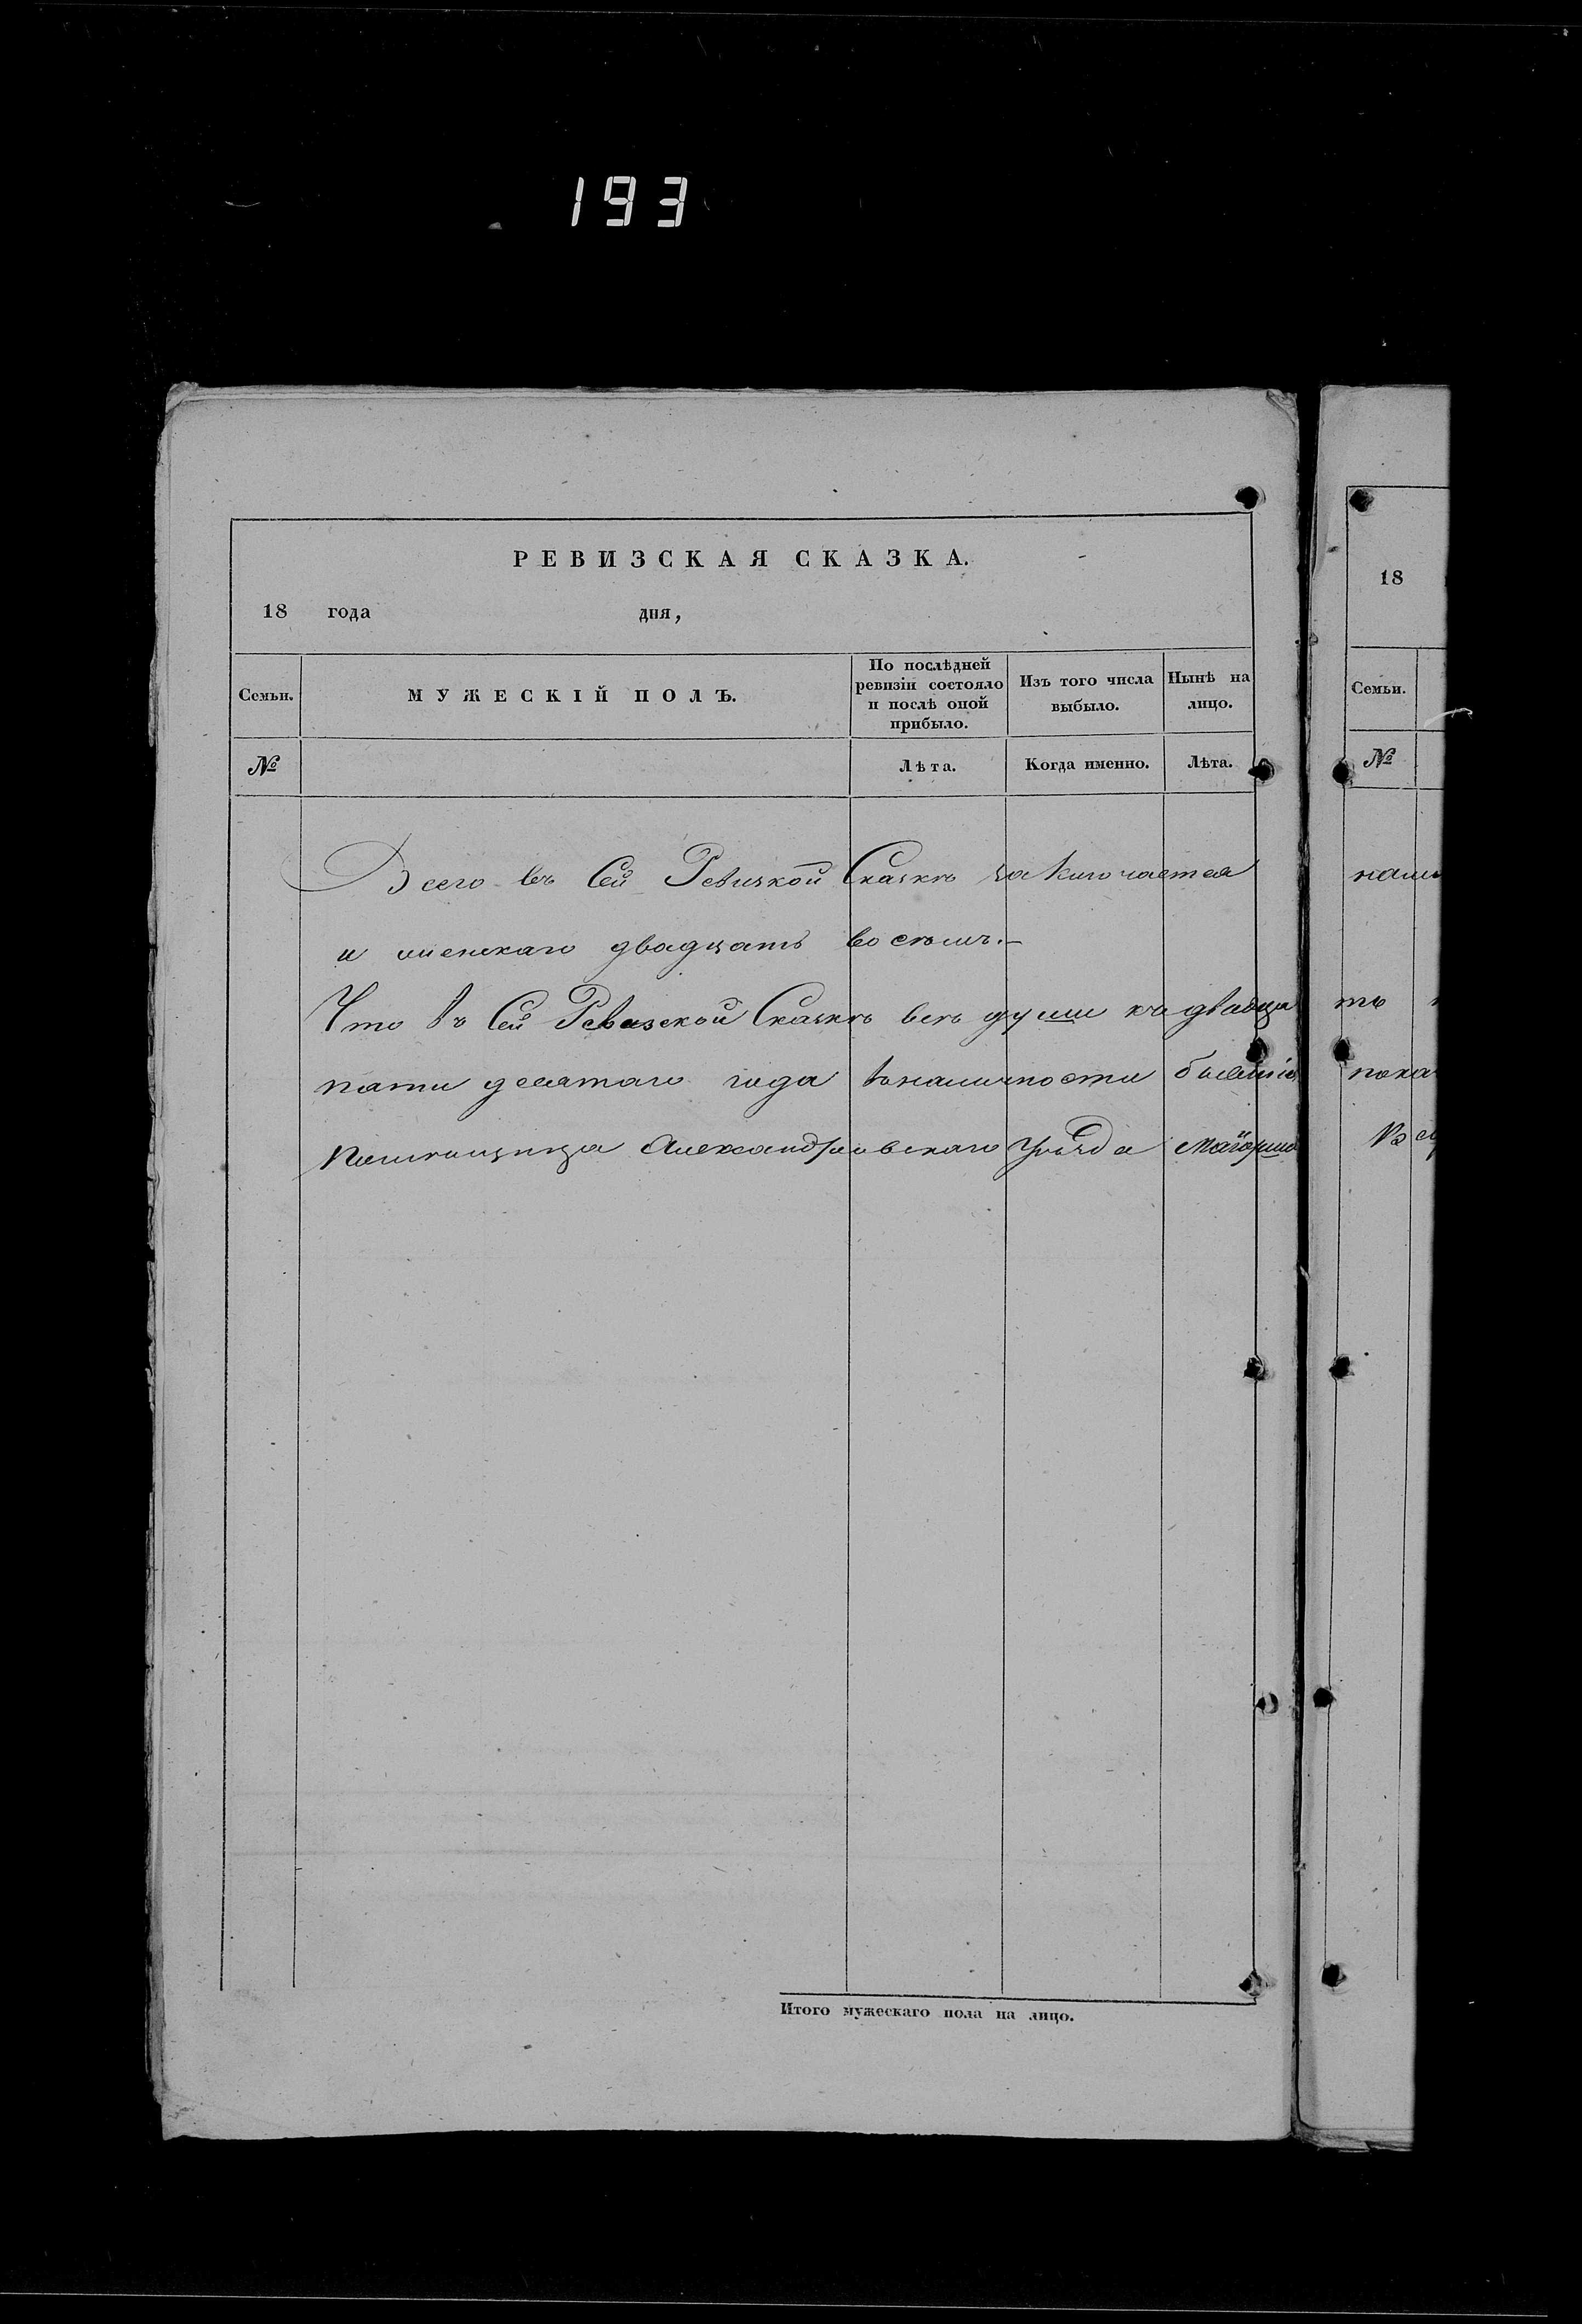 193
РЕВИЗСКАЯ СКАЗКА.
18 года дня,
Семьи.
МУЖЕСКІЙ ПОЛЪ.
По послѣдней ревизіи состояло и послѣ оной прибыло.
Изъ того числа выбыло.
Нынѣ на лицо.
№
Лѣта.
Когда именно.
Лѣта.
Всего въ Сей Ревизкой Сказкѣ заключается
и женскаго двадцать восемь.—
Что въ Сей Ревизской Сказкѣ всѣ души къ двадца
пяти десятаго года въналичности бывшіе
Помѣщица Александровскаго Уѣзда Маіорша
Итого мужескаго пола на лицо.
18
Семьи.
№
нали
ть
пока